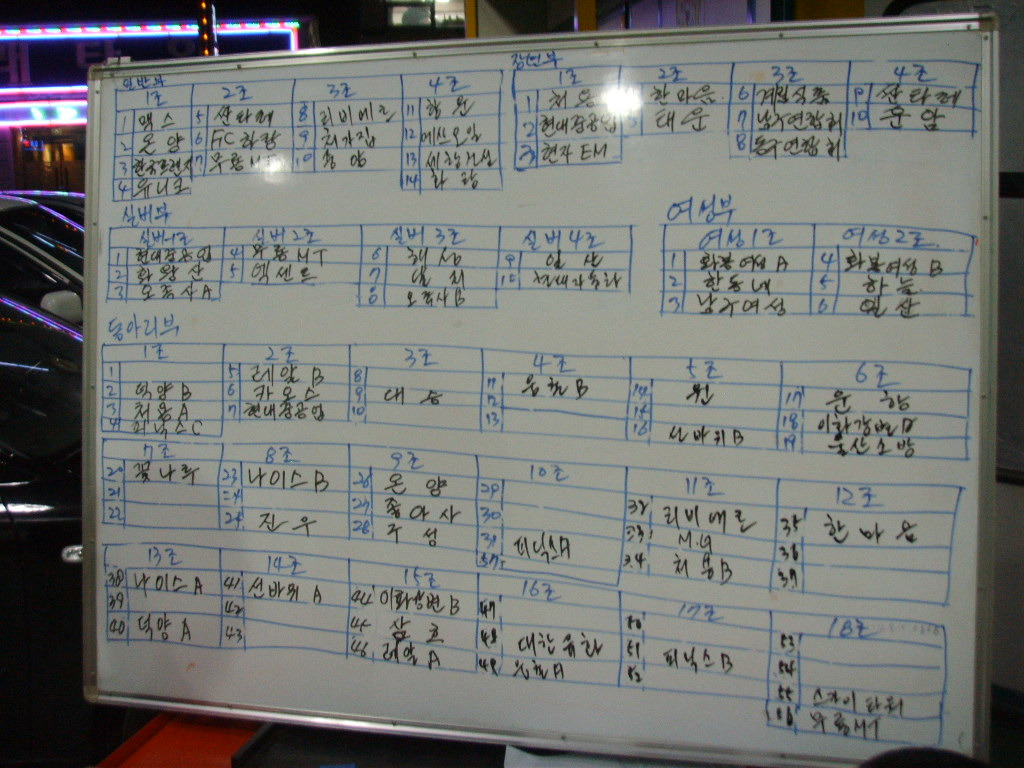 일반부
1조 2조 3조 4조
1 맥스 5 싼타페 8 리비에로 11 항원
2 온양 6 FC화랑 9 처가집 12 에쓰오일
3 한국프랜지 7 우룡MT 10 중앙 13
4 유니코 14 화랑
장년부
1조 2조 3조 4조
1 처용 4 한마음 6 9 싼타페
2 현대중공업 5 태운 7 남구연합회 10 문암
3 현자EM 8 동구연합회
실버부
실버1조 실버2조 실버3조 실버4조
1 현대중공업 4 우룡MT 6 해상 9 일산
2 화왕산 5 엑센트 7 10 현대자동차
3 오죽사A 8 오죽사B
여성부
여성1조 여성2조
1 화봉여성A 4 화봉여성B
2 한동네 5 하늘
3 남구여성 6 일산
동아리부
1조 2조 3조 4조 5조 6조
1 5 레알B 8 11 14 원 17 운항
2 덕양B 6 카오스 9 대승 12 15 18 이화강변B
3 처용A 7 현대중공업 10 13 16 선바위B 19 울산소방
4 피닉스C
7조 8조 9조 10조 11조 12조
20 꽃나루 23 나이스B 26 온양 29 32 리비에로 35 한마음
21 24 27 좋아사 30 33 M.U 36
22 25 진우 28 주성 31 피닉스A 34 처용B 37
13조 14조 15조 16조 17조 18조
38 나이스A 41 선바위A 44 이화강변B 47 50 53
39 42 45 삼호 48 대한유화 51 피닉스B 54
40 덕양A 43 46 레알A 49 52 55 스카이타워
56 우룡MT